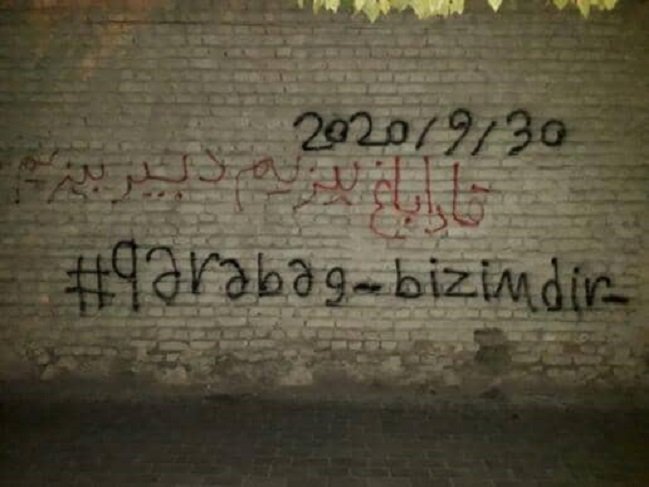 2020/9/30
قاراباغ بیزیم دییر بیزیم
#qərəbəg-bizimdir-